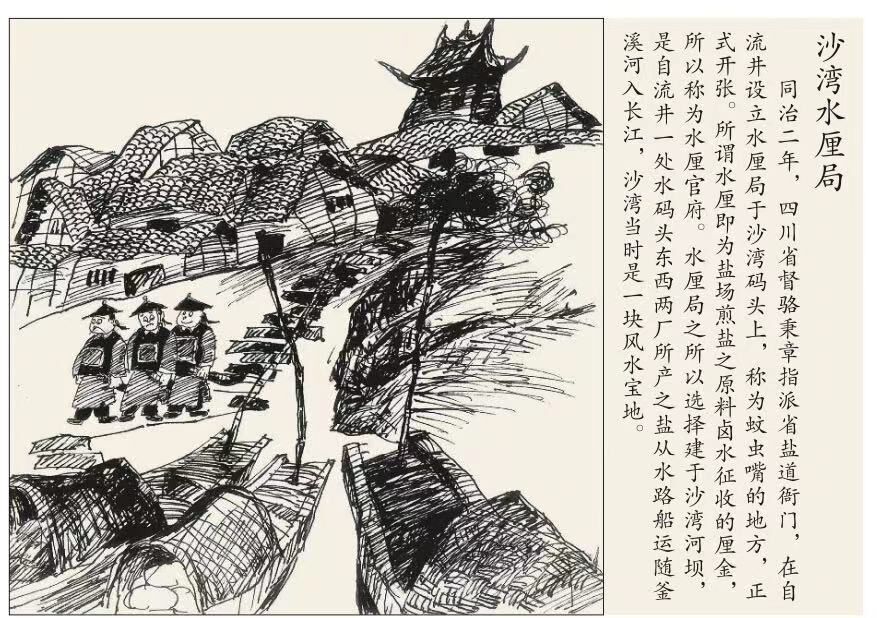 沙湾水厘局
同治二年，四川省督骆秉章指派省盐道衙门，在自
流井设立水厘局于沙湾码头上，称为蚊虫嘴的地方，正
式开张。所谓水厘即为盐场煎盐之原料卤水征收的厘金，
所以称为水厘官府。水厘局之所以选择建于沙湾河坝，
是自流井一处水码头东西两厂所产之盐从水路船运随釜
溪河入长江，沙湾当时是一块风水宝地。